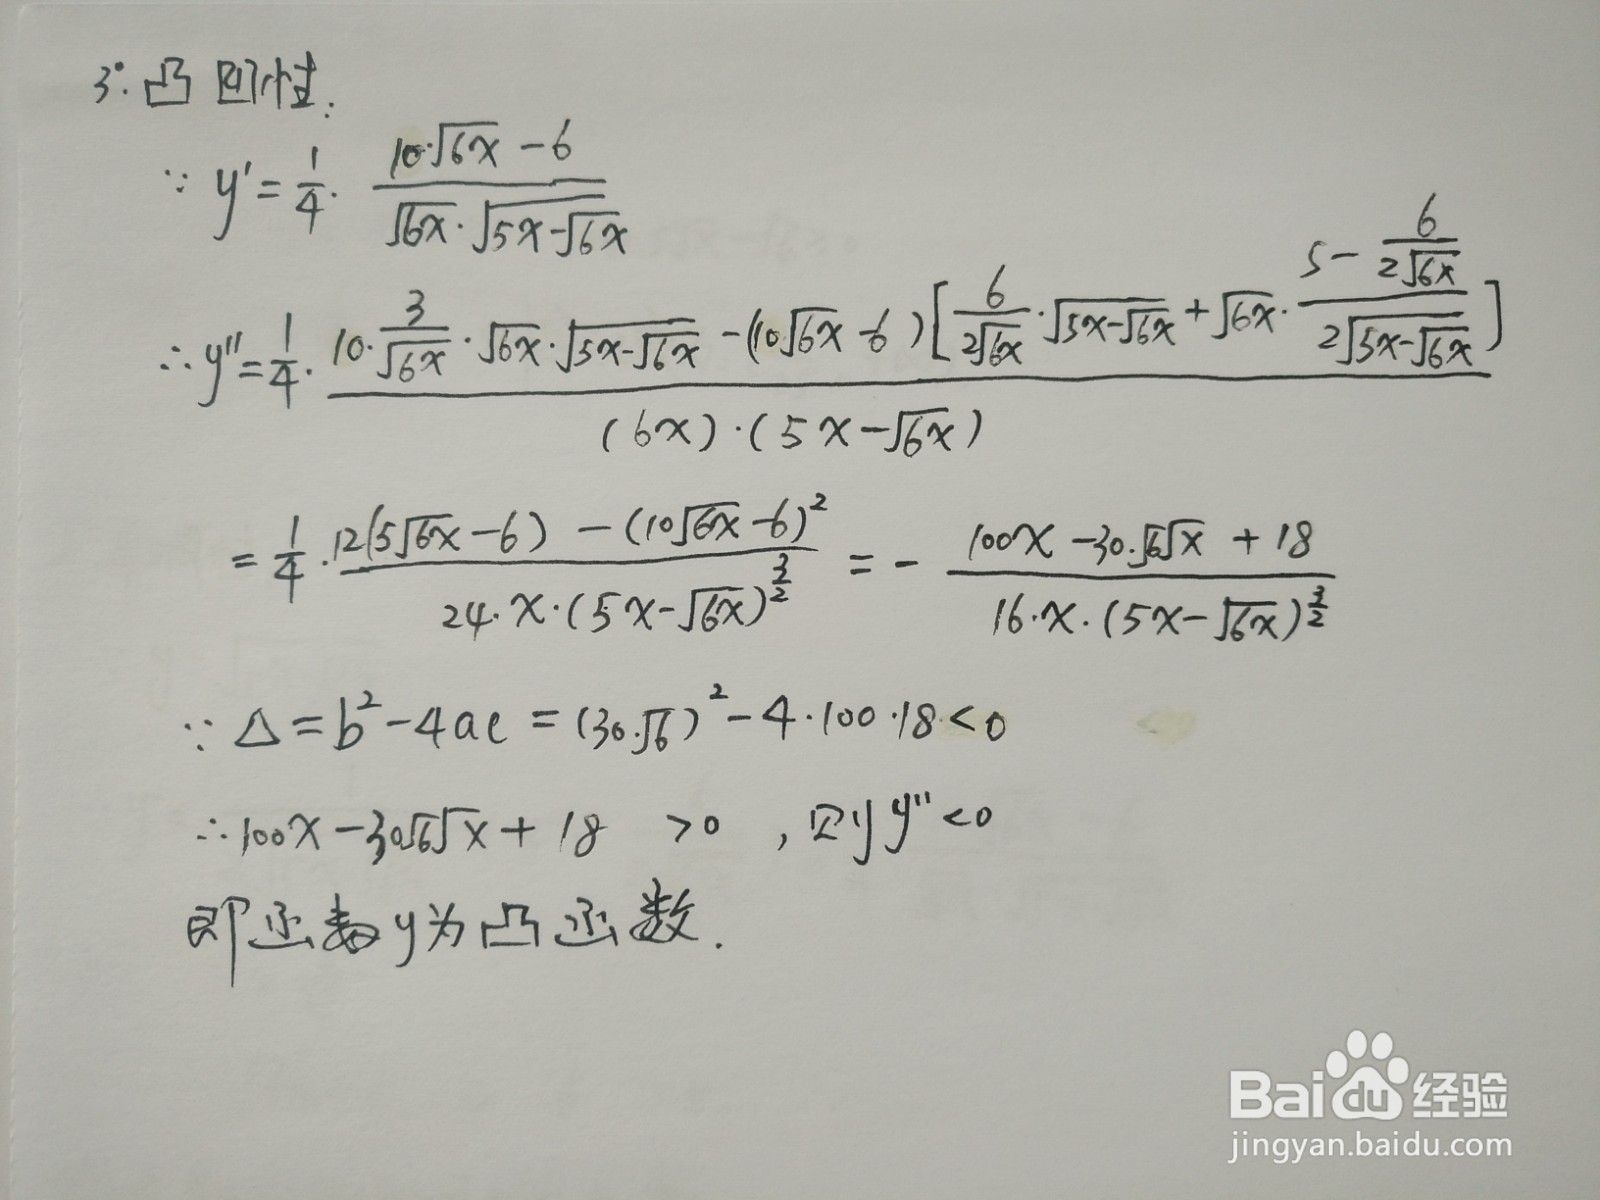 3°. 凸凹性:
∵ y' = 1/4 · (10·√(6x) - 6) / (√(6x)·√(5x-√(6x)))
∴ y'' = 1/4 · {10·3/√(6x)·√(6x)·√(5x-√(6x)) - (10√(6x) - 6)[6/(2√(6x))·√(5x-√(6x)) + √(6x)·(5 - 6/(2√(6x)))/(2√(5x-√(6x)))]} / ((6x)·(5x-√(6x)))
= 1/4 · (12(5√(6x)-6) - (10√(6x)-6)²) / (24·x·(5x-√(6x))^(3/2)) = - (100x - 30·√6√x + 18) / (16·x·(5x-√(6x))^(3/2))
∵ Δ = b² - 4ac = (30·√6)² - 4·100·18 < 0
∴ 100x - 30√6√x + 18 > 0 , 则 y'' < 0
即函数y为凸函数.
Baidu 经验
jingyan.baidu.com